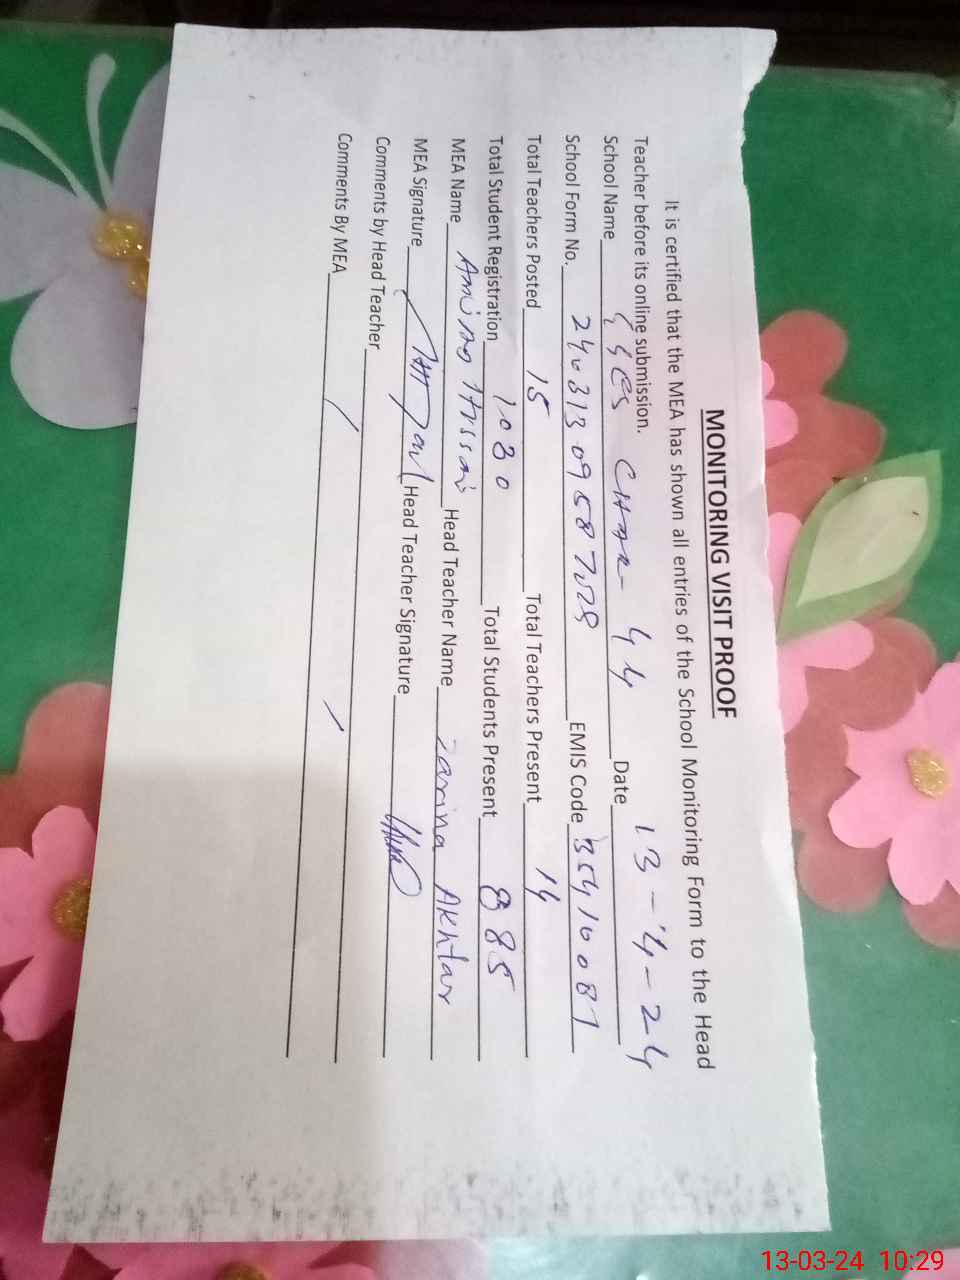 MONITORING VISIT PROOF
It is certified that the MEA has shown all entries of the School Monitoring Form to the Head
Teacher before its online submission.
School Name GGES CHAK 44 Date 13-4-24
School Form No. EMIS Code 35410081
Total Teachers Posted 15 Total Teachers Present 14
Total Student Registration 1080 Total Students Present 885
MEA Name Head Teacher Name Zarina Akhtar
MEA Signature Head Teacher Signature
Comments by Head Teacher
Comments By MEA
13-03-24 10:29